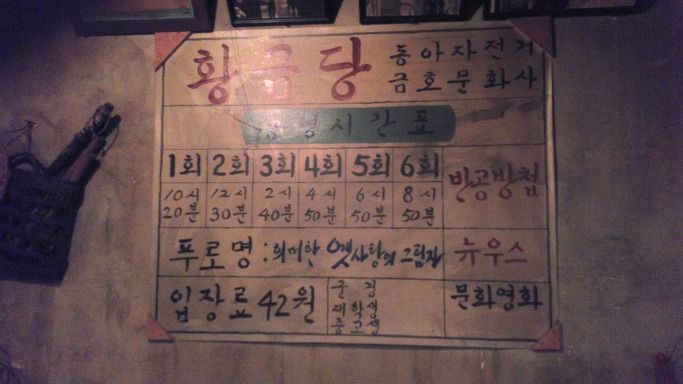 황금당 동아자전거
금호문화사
상영시간표
1회 2회 3회 4회 5회 6회
10시 12시 2시 4시 6시 8시
20분 30분 40분 50분 50분 50분
반공방첩
푸로명 : 희미한 옛사랑의 그림자
뉴우스
입장료 42원
군경
대학생
중고생
문화영화